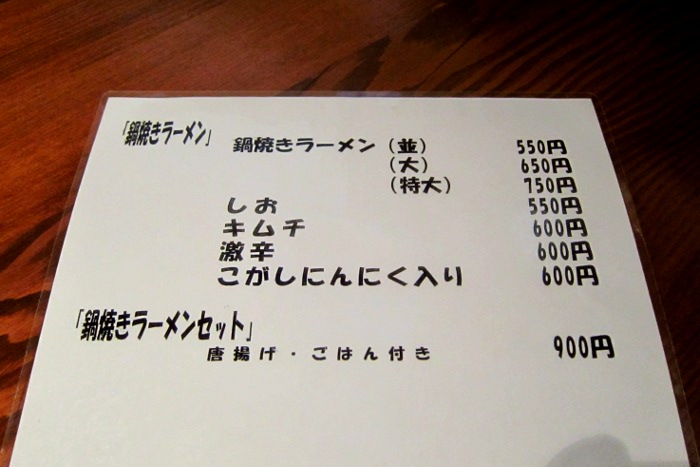 「鍋焼きラーメン」
鍋焼きラーメン(並) 550円
(大) 650円
(特大) 750円
しお 550円
キムチ 600円
激辛 600円
こがしにんにく入り 600円
「鍋焼きラーメンセット」
唐揚げ・ごはん付き 900円